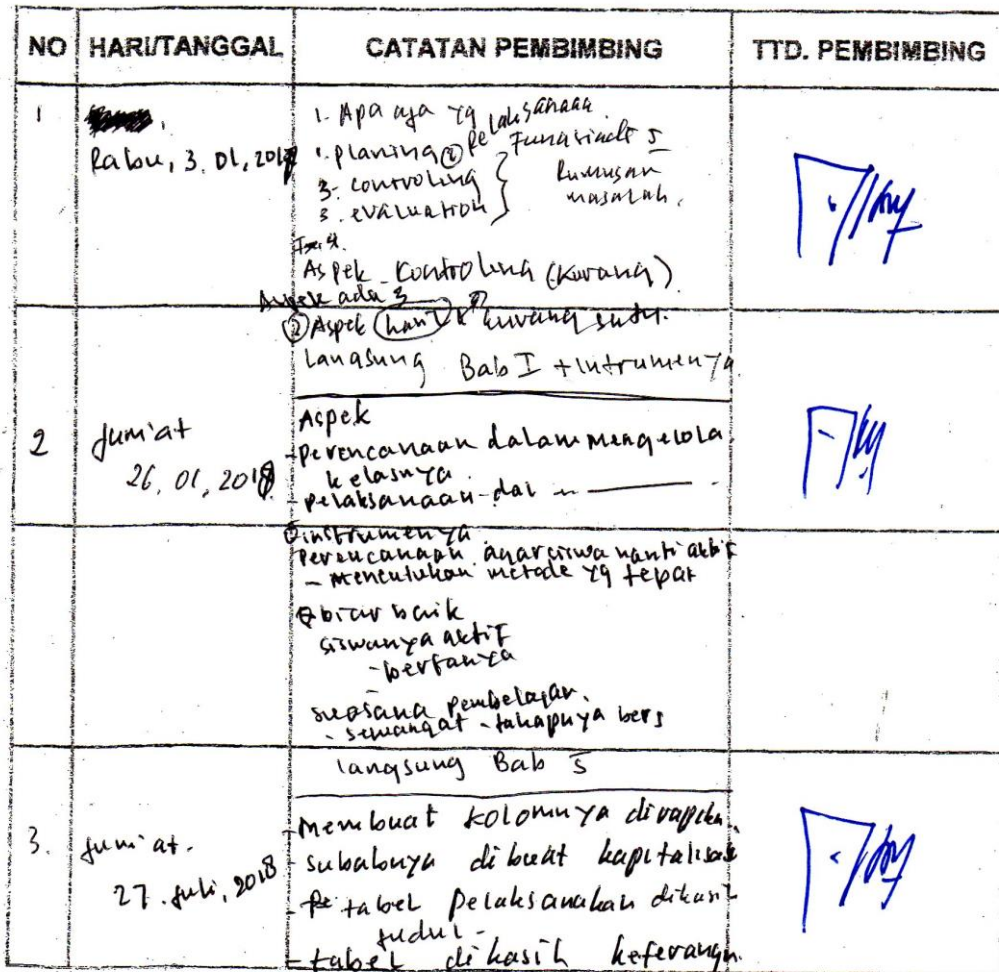 NO HARI/TANGGAL CATATAN PEMBIMBING TTD. PEMBIMBING
1 Rabu, 3. 01, 2018
1. Apa aja yg pelaksanaan
1. planing ② Fungsinale 5
3. controling } Rumusan
3. evaluation } masalah.
Aspek kontroling (kurang)
Aspek ada 3
② Aspek kurang satu.
langsung Bab I + intrumenya
2 Jumi'at
26, 01, 2018
Aspek
- perencanaan dalam mengelola
kelasnya.
- pelaksanaan dal
instrumenya
perencanaan agar siswa nanti aktif
- Menentukan metode yg tepat
biar baik
siswanya aktif
- bertanya
suasana pembelajar.
- semangat - tahapnya bers
langsung Bab 5
3. Jumi'at.
27. Juli, 2018
- Membuat kolomnya dirapikan.
- subabnya dibuat kapitalisasi
- tabel pelaksanakan dikasih
judul -
- tabel dikasih keterangn.